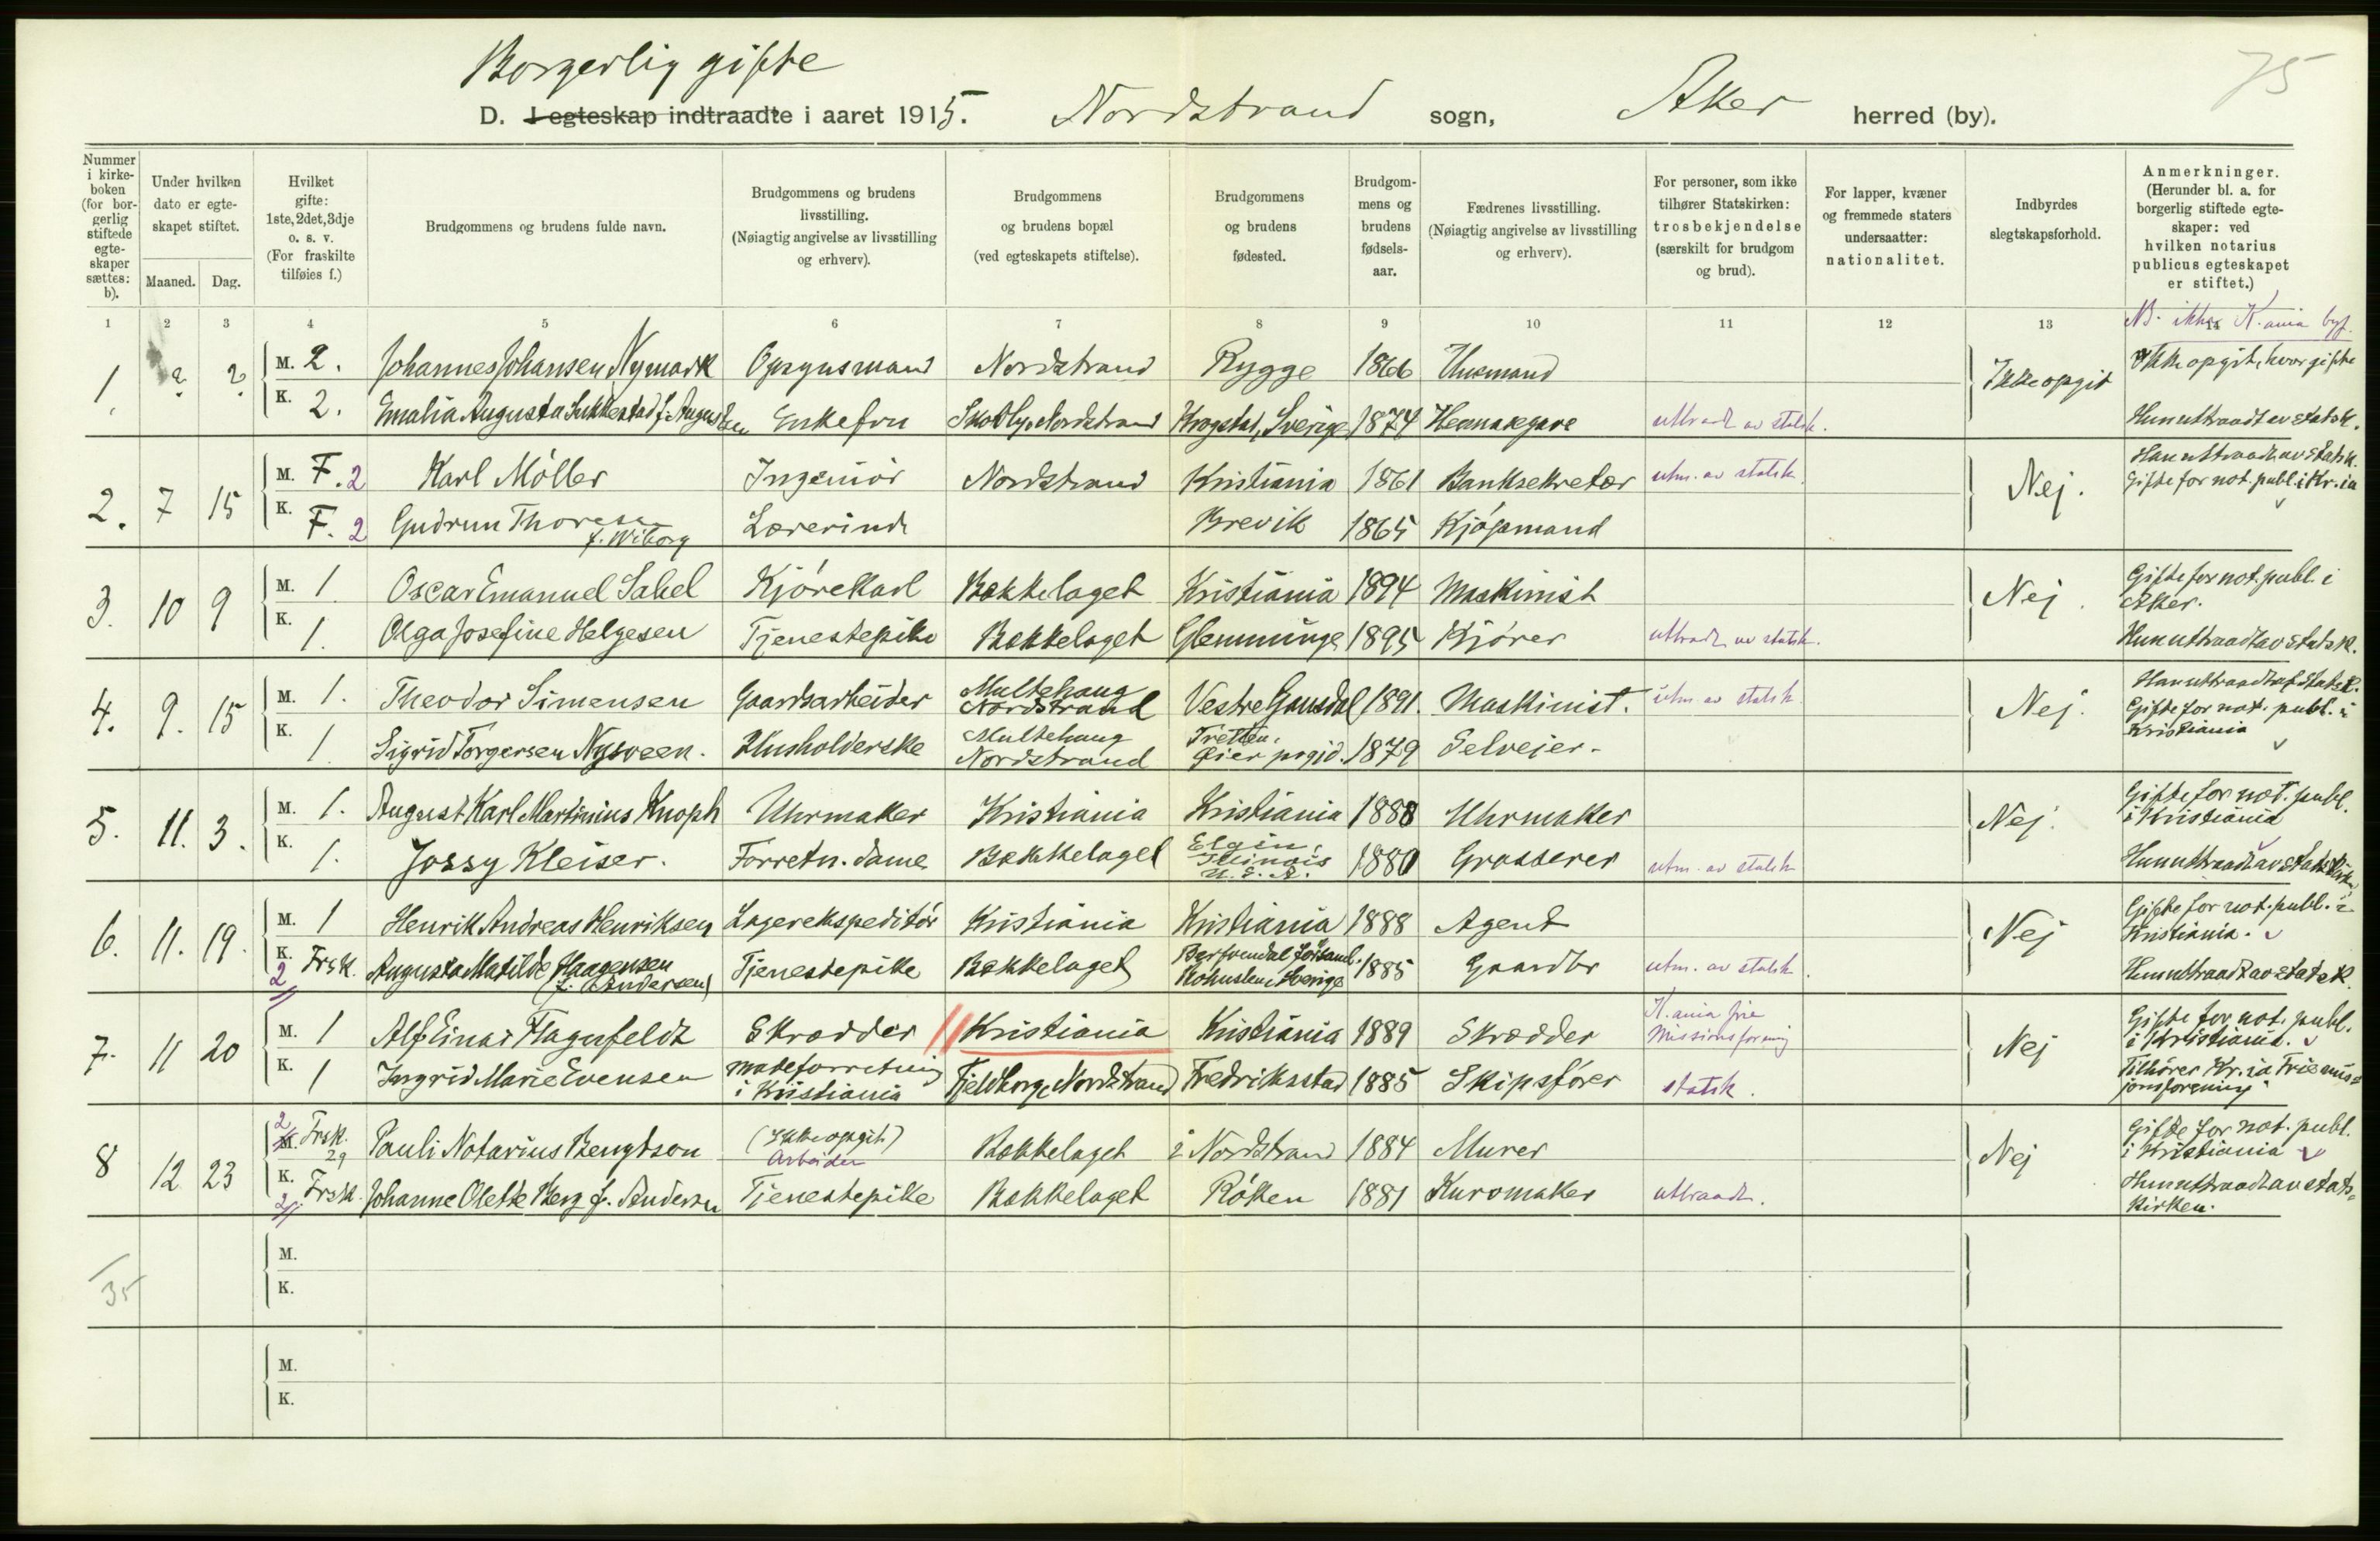 75
Borgerlig gifte
D. I egteskap indtraadte i aaret 1915. Nordstrand sogn, Aker herred (by).
Nummer i kirke-boken (for bor-gerlig stiftede egte-skaper sættes: b).
Under hvilken dato er egte-skapet stiftet.
Maaned. Dag.
Hvilket gifte: 1ste, 2det, 3dje o. s. v. (For fraskilte tilføies f.)
Brudgommens og brudens fulde navn.
Brudgommens og brudens livsstilling. (Nøiagtig angivelse av livsstilling og erhverv).
Brudgommens og brudens bopæl (ved egteskapets stiftelse).
Brudgommens og brudens fødested.
Brudgom-mens og brudens fødsels-aar.
Fædrenes livsstilling. (Nøiagtig angivelse av livsstilling og erhverv).
For personer, som ikke tilhører Statskirken: trosbekjendelse (særskilt for brudgom og brud).
For lapper, kvæner og fremmede staters undersaatter: nationalitet.
Indbyrdes slegtskapsforhold.
Anmerkninger. (Herunder bl. a. for borgerlig stiftede egte-skaper: ved hvilken notarius publicus egteskapet er stiftet.)
1 2 3 4 5 6 7 8 9 10 11 12 13 14
NB. ikke K.ania byf.
1. ? ? M. 2. Johannes Johansen Nymark Opsynsmand Nordstrand Rygge 1866 Husmand Ikke opgit Ikke opgit, hvor gifte
K. 2. Emalia Augusta f. Augustsen Enkefru Nordstrand Krogstad, Sverige 1874 uttraadt av statsk. Hun uttraadt av statsk.
2. 7 15 M. F. 2 Karl Möller Ingeniör Nordstrand Kristiania 1861 Banksekretær utm. av statsk. Nej. Han uttraadt av statsk. Gifte for not. publ. i Kr.ia
K. F. 2 Gudrun Thoresen f. Wiborg Lærerinde Brevik 1865 Kjøpmand
3. 10 9 M. 1 Oscar Emanuel Sahel Kjørekarl Bækkelaget Kristiania 1894 Maskinist Nej. Gifte for not. publ. i Aker.
K. 1. Olga Josefine Helgesen Tjenestepike Bækkelaget Glemminge 1895 Kjører uttraadt av statsk. Hun uttraadt av statsk.
4. 9. 15 M. 1. Theodor Simensen Gaardsarbeider Multehaug Nordstrand Vestre Gausdal 1891. Maskinist. utm av statsk. Nej. Han uttraadt af statsk. Gifte for not. publ. i Kristiania
K. 1 Sigrid Torgersen Nysveen. Husholderske Multehaug Nordstrand Tretten, Øier prgjd. 1879 Selveier.
5. 11. 3. M. 1. August Karl Martinius Knoph Uhrmaker Kristiania Kristiania 1888 Uhrmaker Nej. Gifte for not. publ. i Kristiania
K. 1. Jossy Kleiser. Forretn. dame Bækkelaget Elgin, Illinois U. S. A. 1880 Grosserer utm. av statsk Hun uttraadt av statskirken
6. 11. 19. M. 1 Henrik Andreas Henriksen Lagerekspeditör Kristiania Kristiania 1888 Agent Nej Gifte for not. publ. i Kristiania.
K. 2 Frsk. Augusta Matilde Haagensen (f. Andersen) Tjenestepike Bækkelaget Bohuslen, Sverige 1885 Gaardbr utm. av statsk. Hun uttraadt av statsk.
7. 11 20 M. 1 Alf Einar Hagnfeldt Skrædder Kristiania Kristiania 1889 Skrædder K.ania frie Missionsforening Nej Gifte for not. publ. i Kristiania.
K. 1 Ingrid Marie Evensen Moteforretning i Kristiania Fjeldborg, Nordstrand Fredriksstad 1885 Skipsfører statsk. Tilhörer Kr.ia Frie missjonsforening
8 12 23 M. 2 Frsk. Pauli Notarius Bengtson (Ikke opgit) Arbeider Bækkelaget i Nordstrand 1884 Murer Nej Gifte for not. publ. i Kristiania
K. 2 Frsk. Johanne Olette Berg f. Andersen Tjenestepike Bækkelaget Røken 1881 Kurvmaker uttraadt. Hun uttraadt av stats-kirken.
M.
K.
35
M.
K.